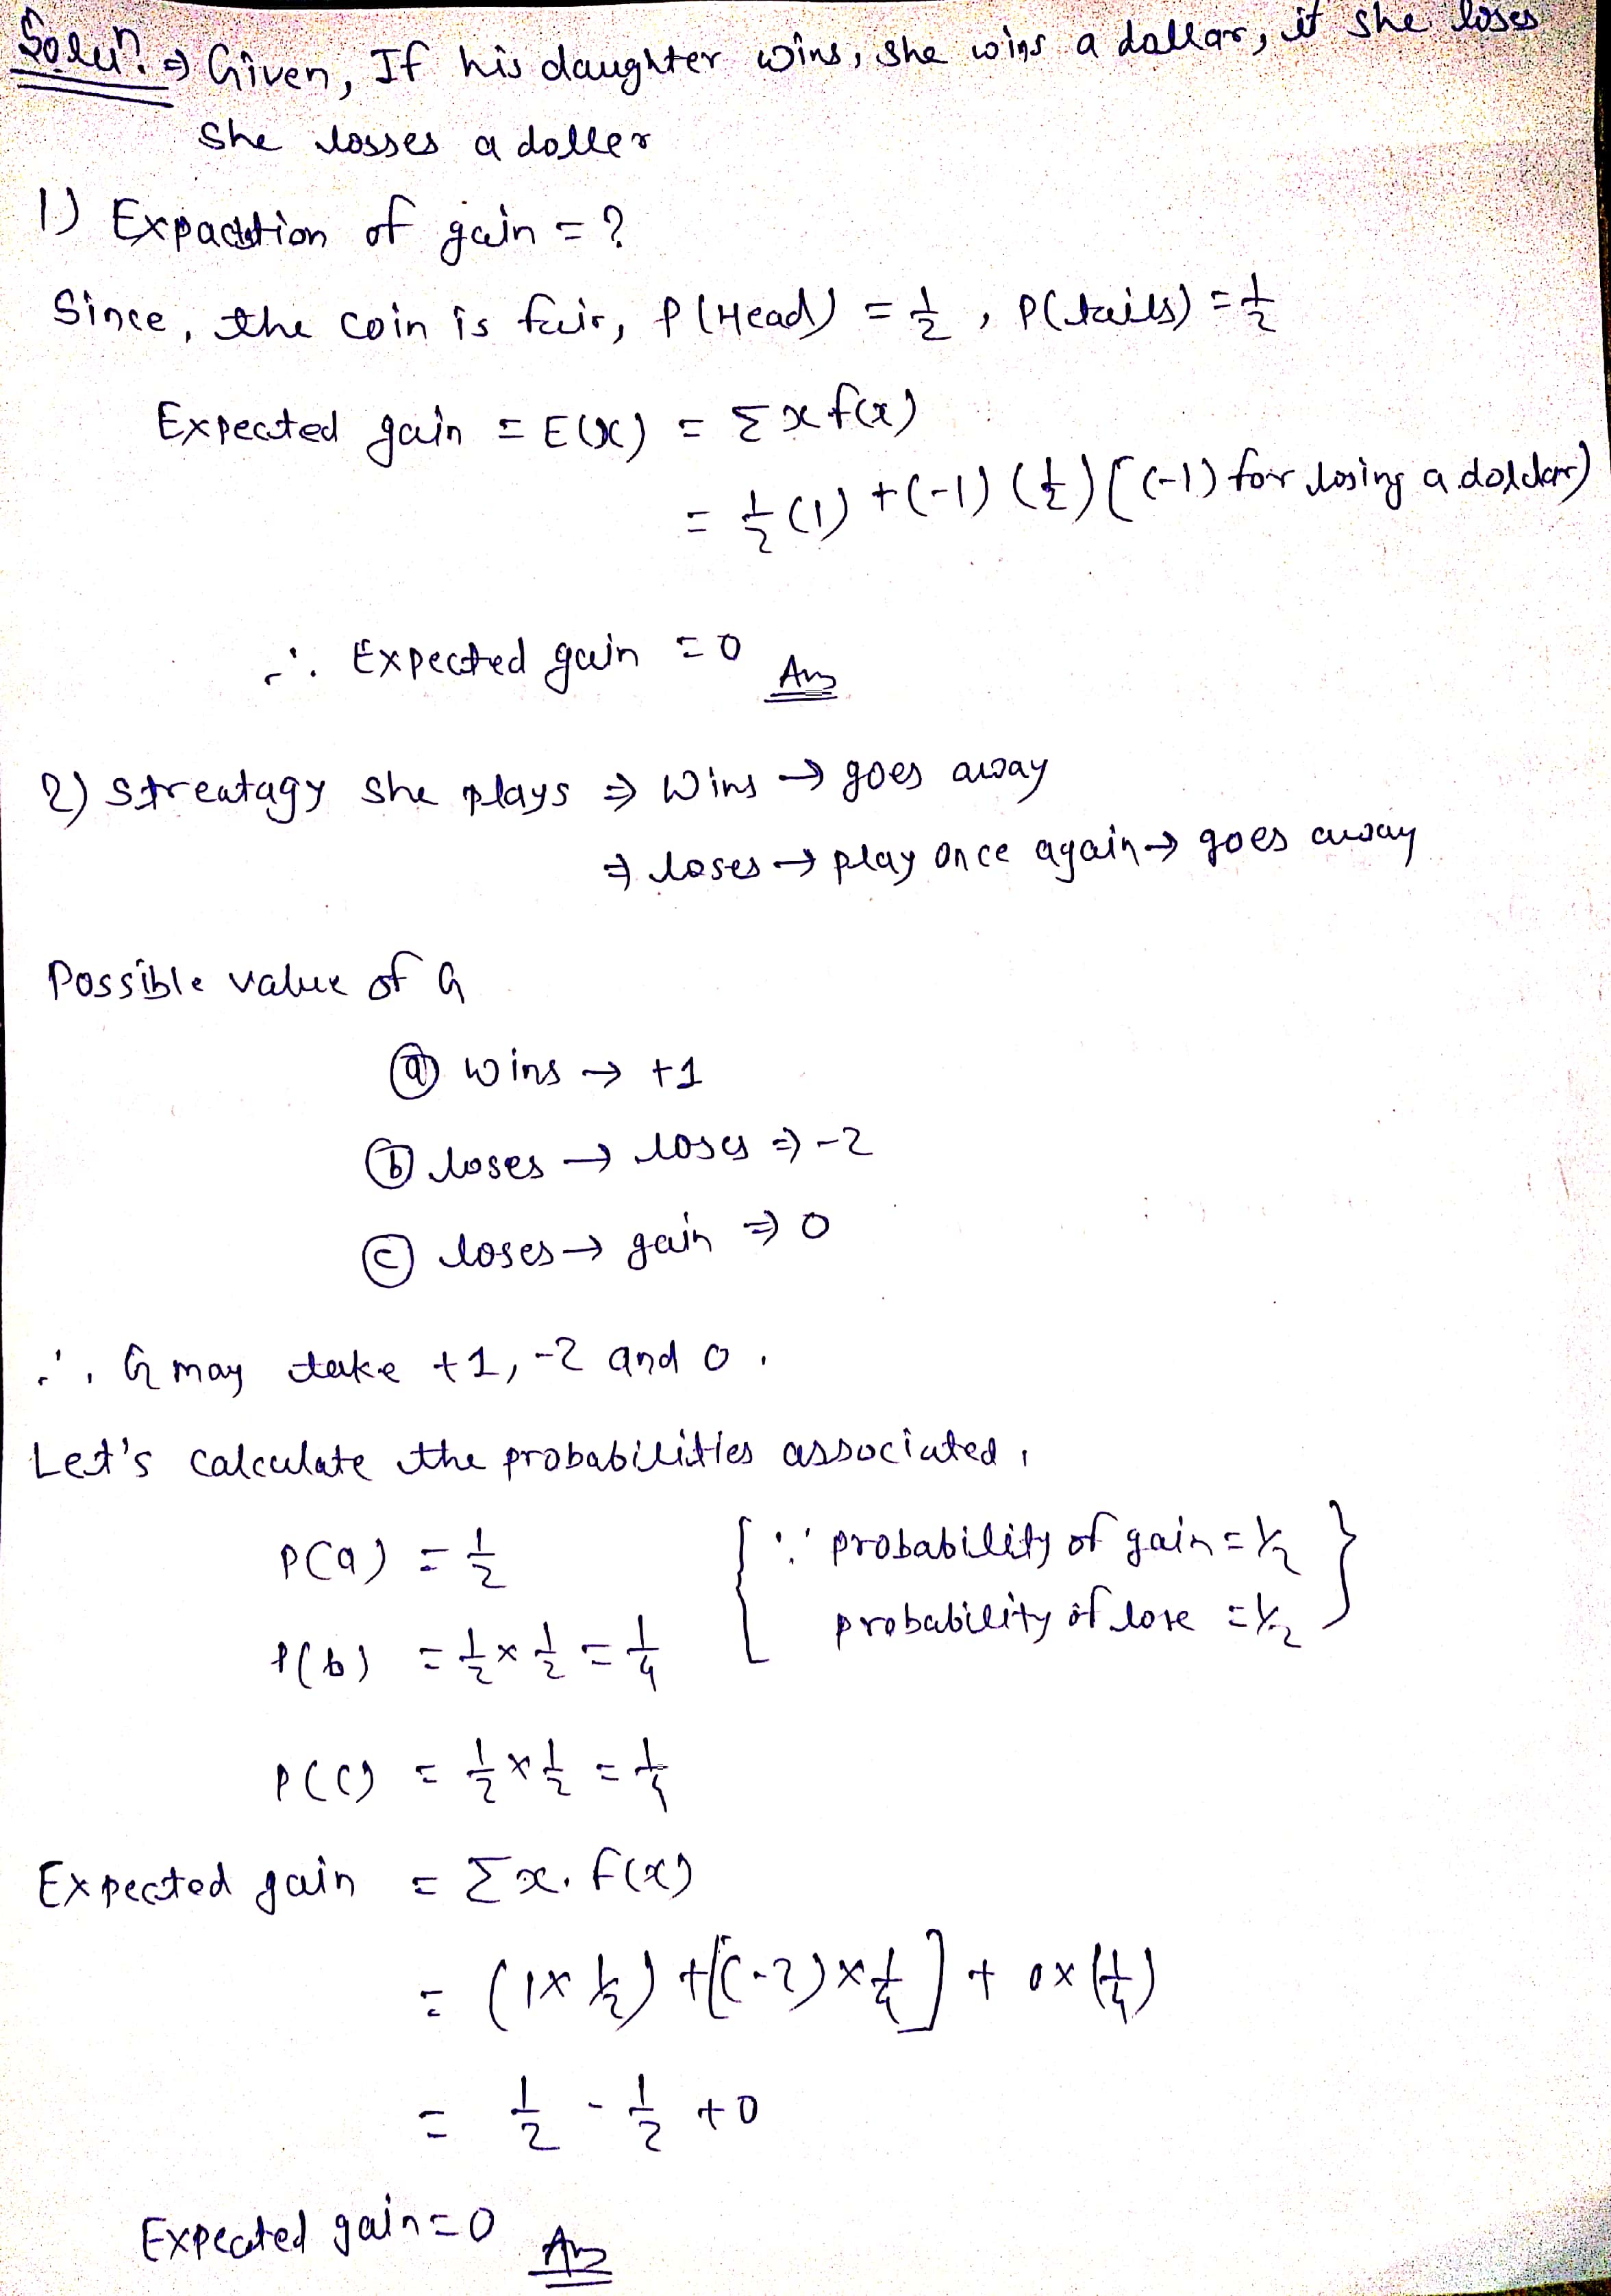 Solun. ⇒ Given, If his daughter wins, she wins a dollar, if she loses
she losses a doller
1) Expacttion of gain = ?
Since, the coin is fair, P(Head) = 1/2, P(tails) = 1/2
Expected gain = E(x) = Σxf(x)
= 1/2 (1) + (-1) (1/2) [(-1) for losing a doldar)
∴ Expected gain = 0 Ans
2) Streatagy she plays ⇒ Wins → goes away
⇒ loses → play once again → goes away
Possible value of G
(a) wins → +1
(b) loses → loses ⇒ -2
(c) loses → gain ⇒ 0
∴ G may take +1, -2 and 0.
Let's calculate the probabilities associated,
P(a) = 1/2 { ∵ probability of gain = 1/2
P(b) = 1/2 × 1/2 = 1/4 probability of lose = 1/2 }
P(c) = 1/2 × 1/2 = 1/4
Expected gain = Σx. f(x)
= (1 × 1/2) + [(-2) × 1/4] + 0 × (1/4)
= 1/2 - 1/2 + 0
Expected gain = 0 Ans